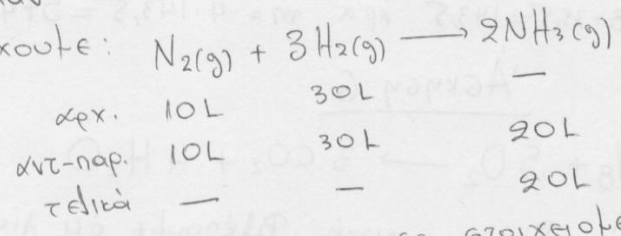 χουμε: N₂(g) + 3H₂(g) ⟶ 2NH₃(g)
αρχ. 10L 30L —
αντ-παρ. 10L 30L 20L
τελικά — — 20L